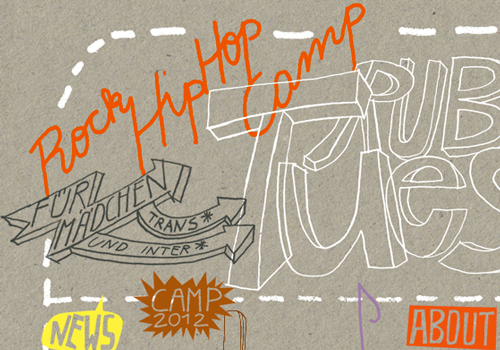 Rock Hip Hop Camp
FÜR
MÄDCHEN
TRANS*
UND INTER*
PUB
Tues
NEWS
CAMP
2012
ABOUT